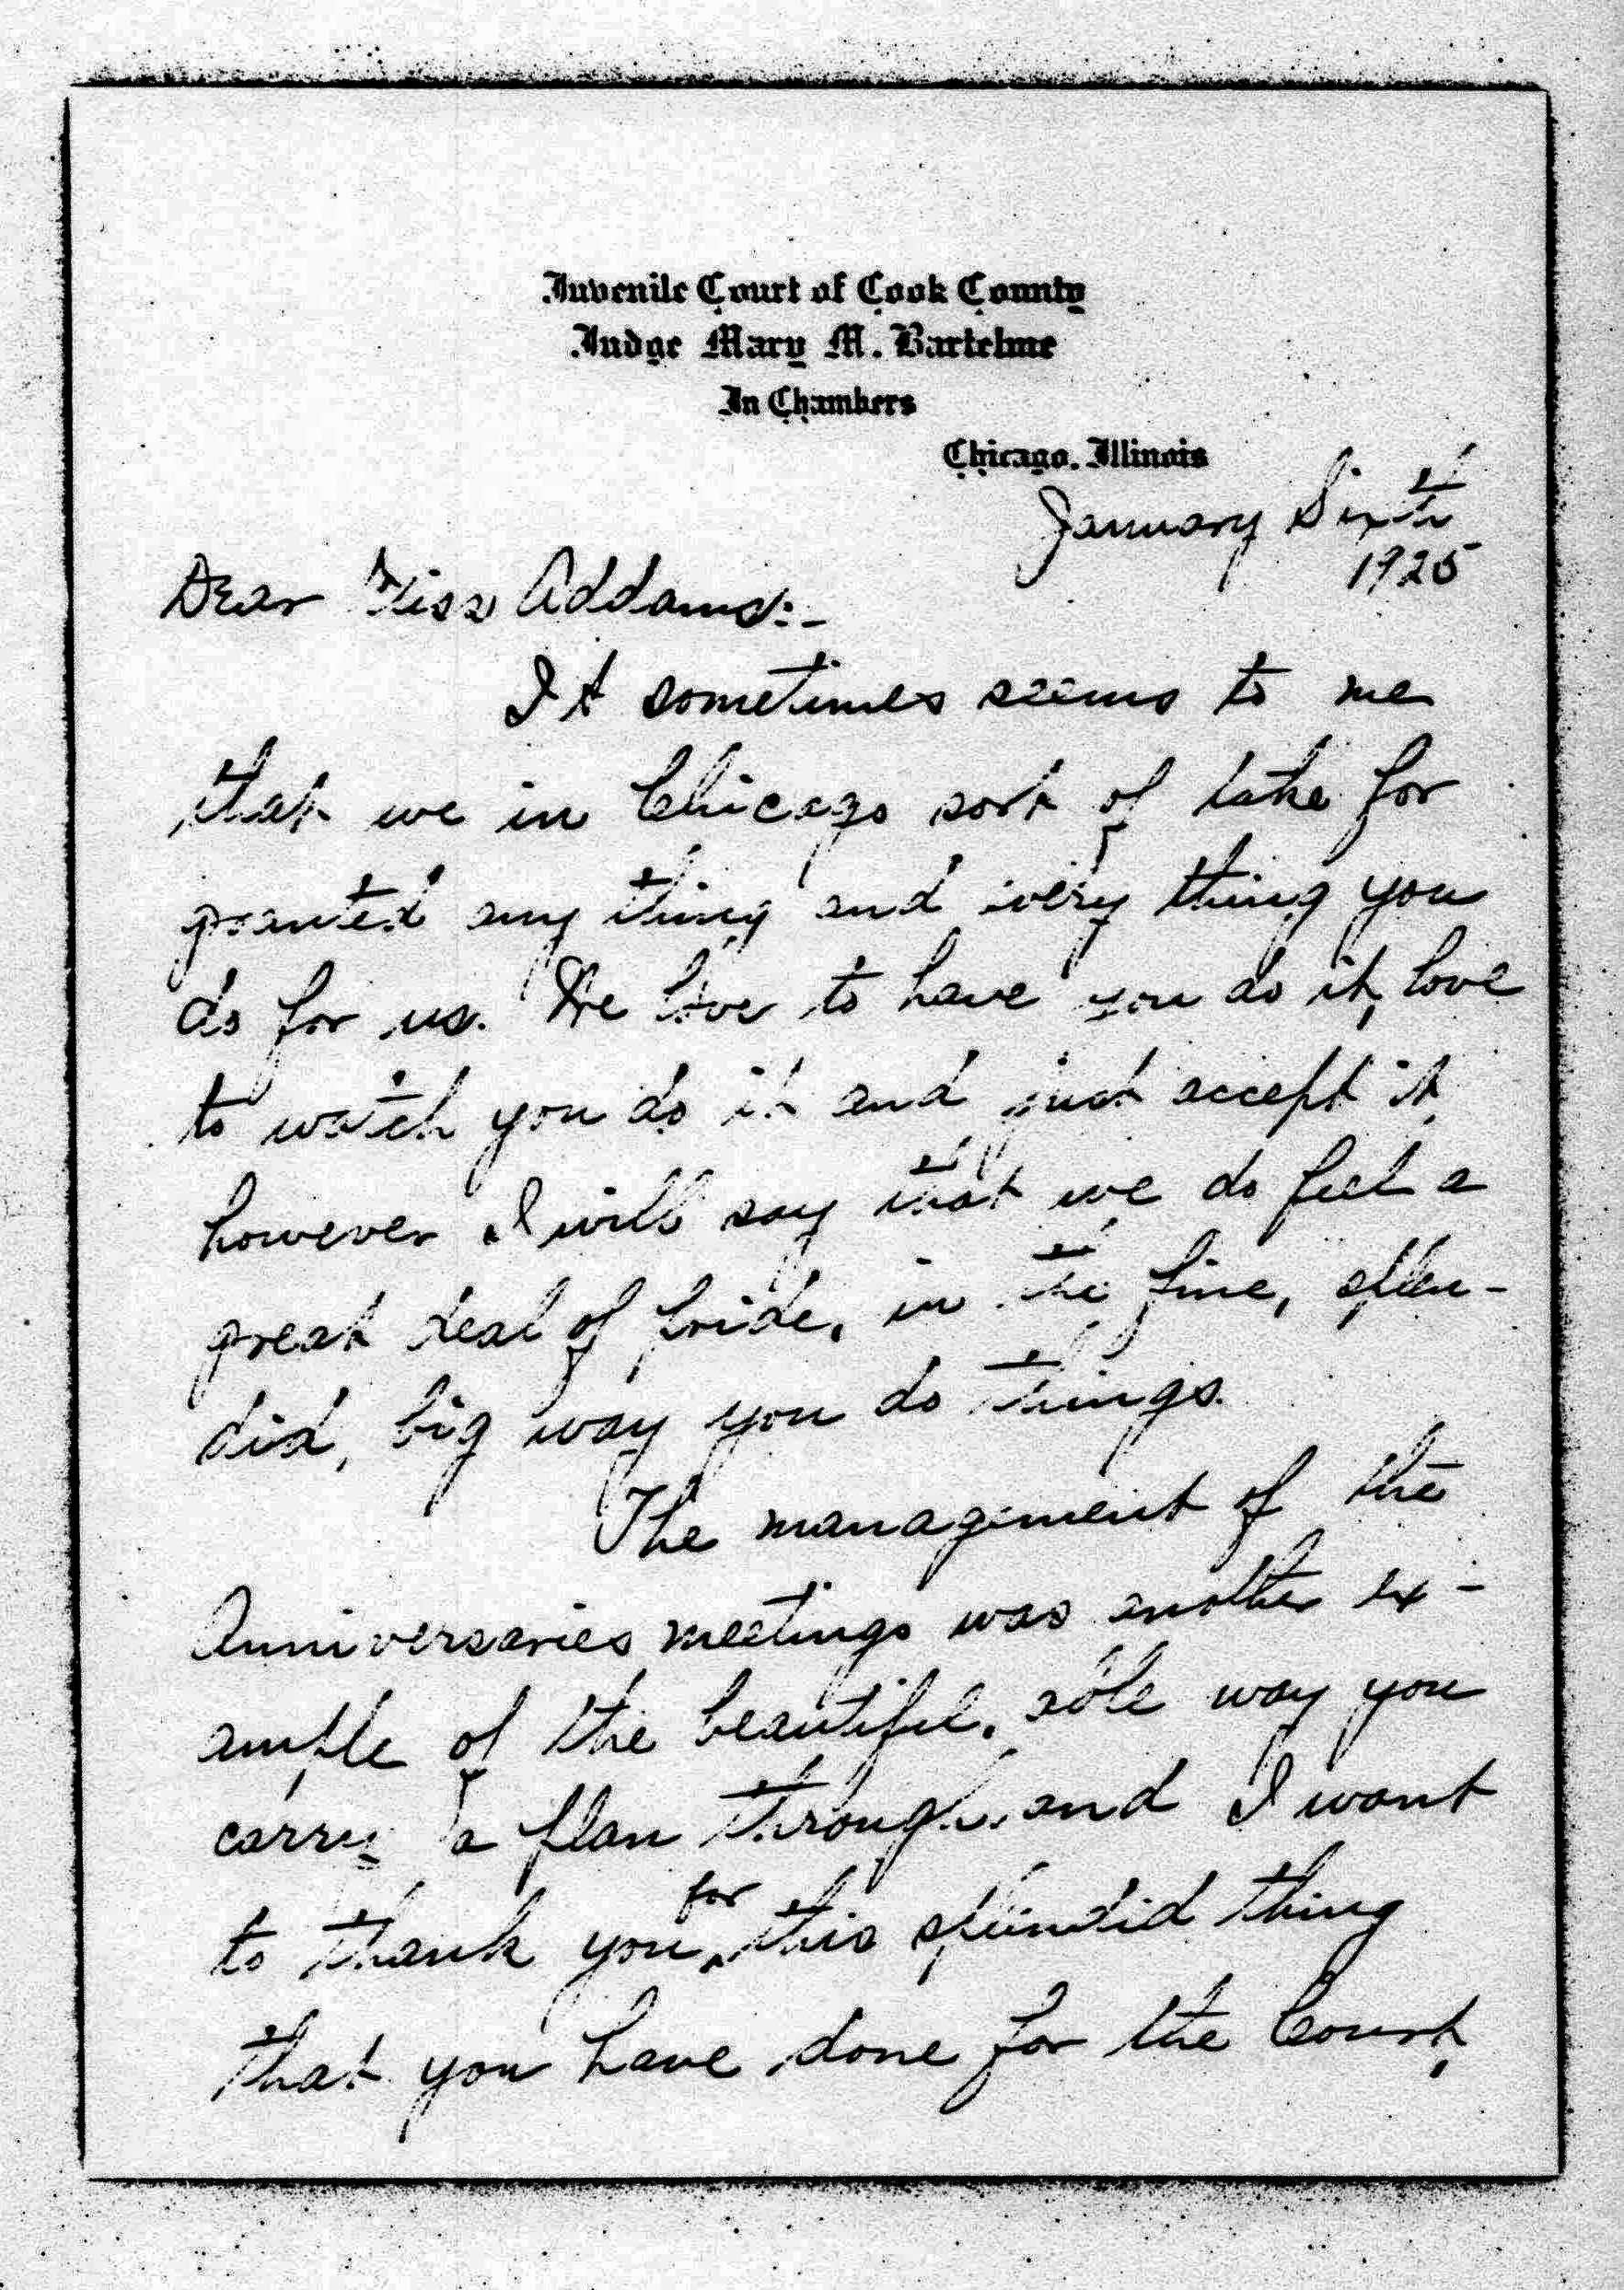 Juvenile Court of Cook County
Judge Mary M. Bartelme
In Chambers
Chicago, Illinois
January Sixth
1925
Dear Miss Addams:-
It sometimes seems to me
that we in Chicago sort of take for
granted any thing and every thing you
do for us. We love to have you do it, love
to watch you do it and just accept it,
however I will say that we do feel a
great deal of pride, in the fine, splen-
did, big way you do things.
The management of the
Anniversaries meetings was another ex-
ample of the beautiful, able way you
carry a plan through, and I want
for
to thank you ‸ this splendid thing
that you have done for the Court,